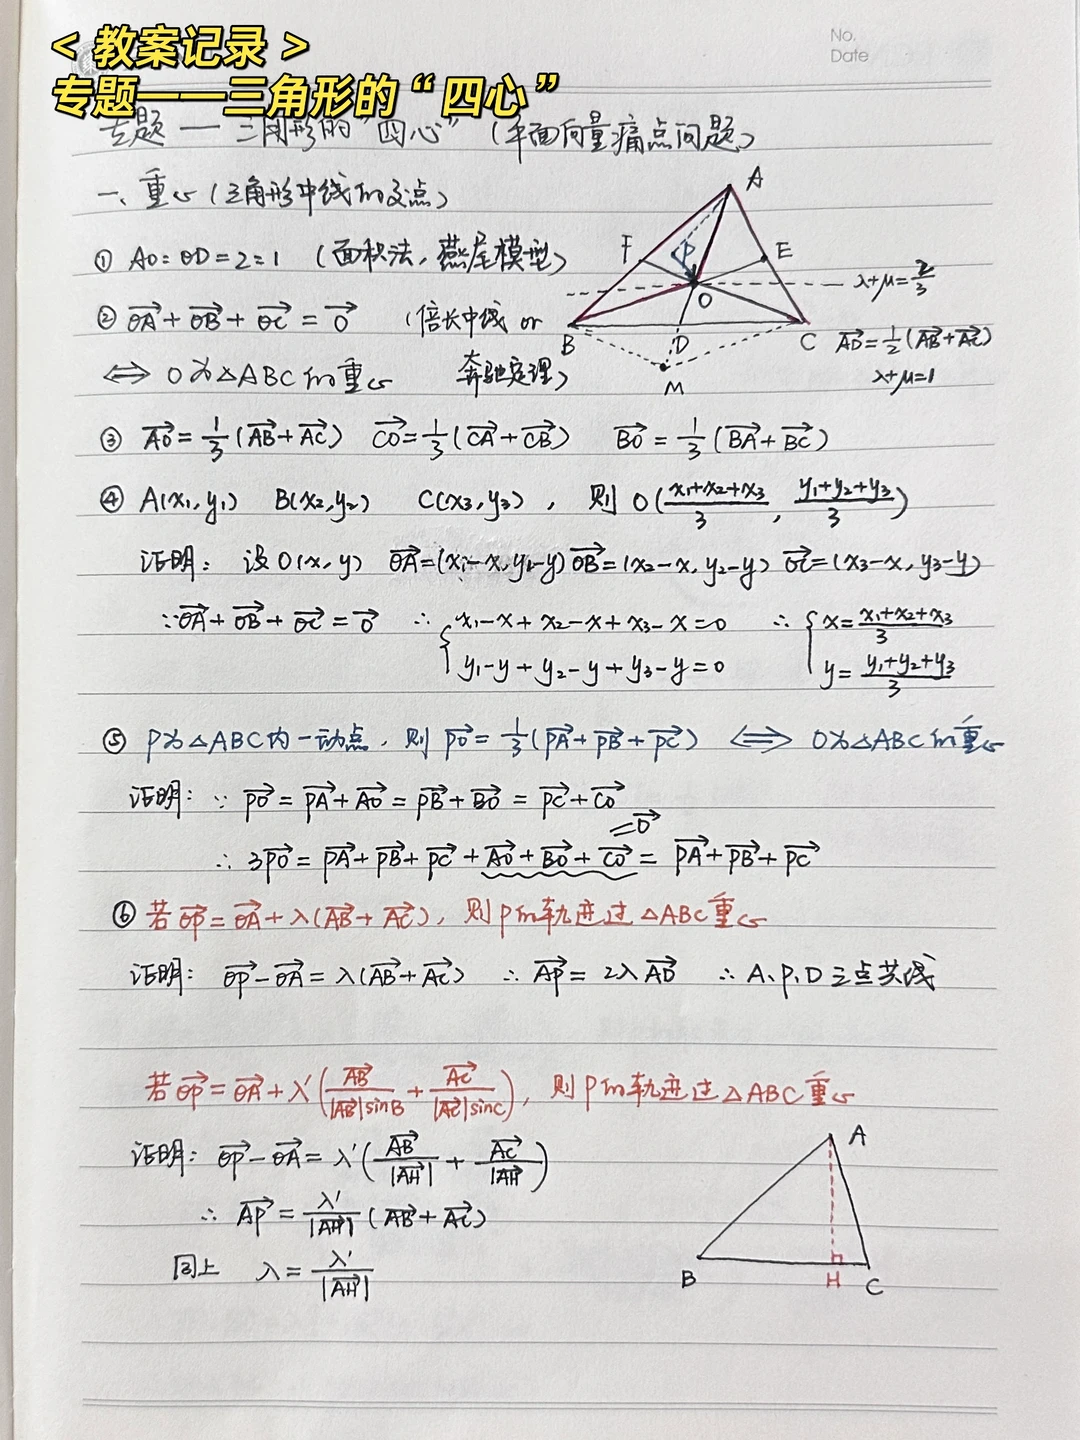 No.
Date
<教案记录>
专题——三角形的“四心”
专题 — 三角形的“四心”（平面向量痛点问题）
一、重心（三角形中线的交点）
① AO:OD=2:1 （面积法，燕尾模型）
② $\overrightarrow{OA}+\overrightarrow{OB}+\overrightarrow{OC}=\overrightarrow{0}$ （倍长中线 or
⟺ O为△ABC的重心 奔驰定理）
A
F
P
E
O
B
D
C
M
$\lambda+\mu=\frac{2}{3}$
$\overrightarrow{AD}=\frac{1}{2}(\overrightarrow{AB}+\overrightarrow{AC})$
$\lambda+\mu=1$
③ $\overrightarrow{AO}=\frac{1}{3}(\overrightarrow{AB}+\overrightarrow{AC})$ $\overrightarrow{CO}=\frac{1}{3}(\overrightarrow{CA}+\overrightarrow{CB})$ $\overrightarrow{BO}=\frac{1}{3}(\overrightarrow{BA}+\overrightarrow{BC})$
④ A(x₁,y₁) B(x₂,y₂) C(x₃,y₃)，则 $O(\frac{x_1+x_2+x_3}{3},\frac{y_1+y_2+y_3}{3})$
证明：设O(x,y) $\overrightarrow{OA}=(x_1-x,y_1-y)$ $\overrightarrow{OB}=(x_2-x,y_2-y)$ $\overrightarrow{OC}=(x_3-x,y_3-y)$
∵ $\overrightarrow{OA}+\overrightarrow{OB}+\overrightarrow{OC}=\overrightarrow{0}$ ∴ $\begin{cases}x_1-x+x_2-x+x_3-x=0\\y_1-y+y_2-y+y_3-y=0\end{cases}$ ∴ $\begin{cases}x=\frac{x_1+x_2+x_3}{3}\\y=\frac{y_1+y_2+y_3}{3}\end{cases}$
⑤ P为△ABC内一动点，则 $\overrightarrow{PO}=\frac{1}{3}(\overrightarrow{PA}+\overrightarrow{PB}+\overrightarrow{PC})$ ⟺ O为△ABC的重心
证明：∵ $\overrightarrow{PO}=\overrightarrow{PA}+\overrightarrow{AO}=\overrightarrow{PB}+\overrightarrow{BO}=\overrightarrow{PC}+\overrightarrow{CO}$
$=\overrightarrow{0}$
∴ $3\overrightarrow{PO}=\overrightarrow{PA}+\overrightarrow{PB}+\overrightarrow{PC}+\overrightarrow{AO}+\overrightarrow{BO}+\overrightarrow{CO}=\overrightarrow{PA}+\overrightarrow{PB}+\overrightarrow{PC}$
⑥ 若 $\overrightarrow{OP}=\overrightarrow{OA}+\lambda(\overrightarrow{AB}+\overrightarrow{AC})$，则P的轨迹过△ABC重心
证明：$\overrightarrow{OP}-\overrightarrow{OA}=\lambda(\overrightarrow{AB}+\overrightarrow{AC})$ ∴ $\overrightarrow{AP}=2\lambda\overrightarrow{AD}$ ∴ A、P、D三点共线
若 $\overrightarrow{OP}=\overrightarrow{OA}+\lambda'(\frac{\overrightarrow{AB}}{|\overrightarrow{AB}|\sin B}+\frac{\overrightarrow{AC}}{|\overrightarrow{AC}|\sin C})$，则P的轨迹过△ABC重心
证明：$\overrightarrow{OP}-\overrightarrow{OA}=\lambda'(\frac{\overrightarrow{AB}}{|\overrightarrow{AH}|}+\frac{\overrightarrow{AC}}{|\overrightarrow{AH}|})$
∴ $\overrightarrow{AP}=\frac{\lambda'}{|\overrightarrow{AH}|}(\overrightarrow{AB}+\overrightarrow{AC})$
同上 $\lambda=\frac{\lambda'}{|\overrightarrow{AH}|}$
A
B
H
C